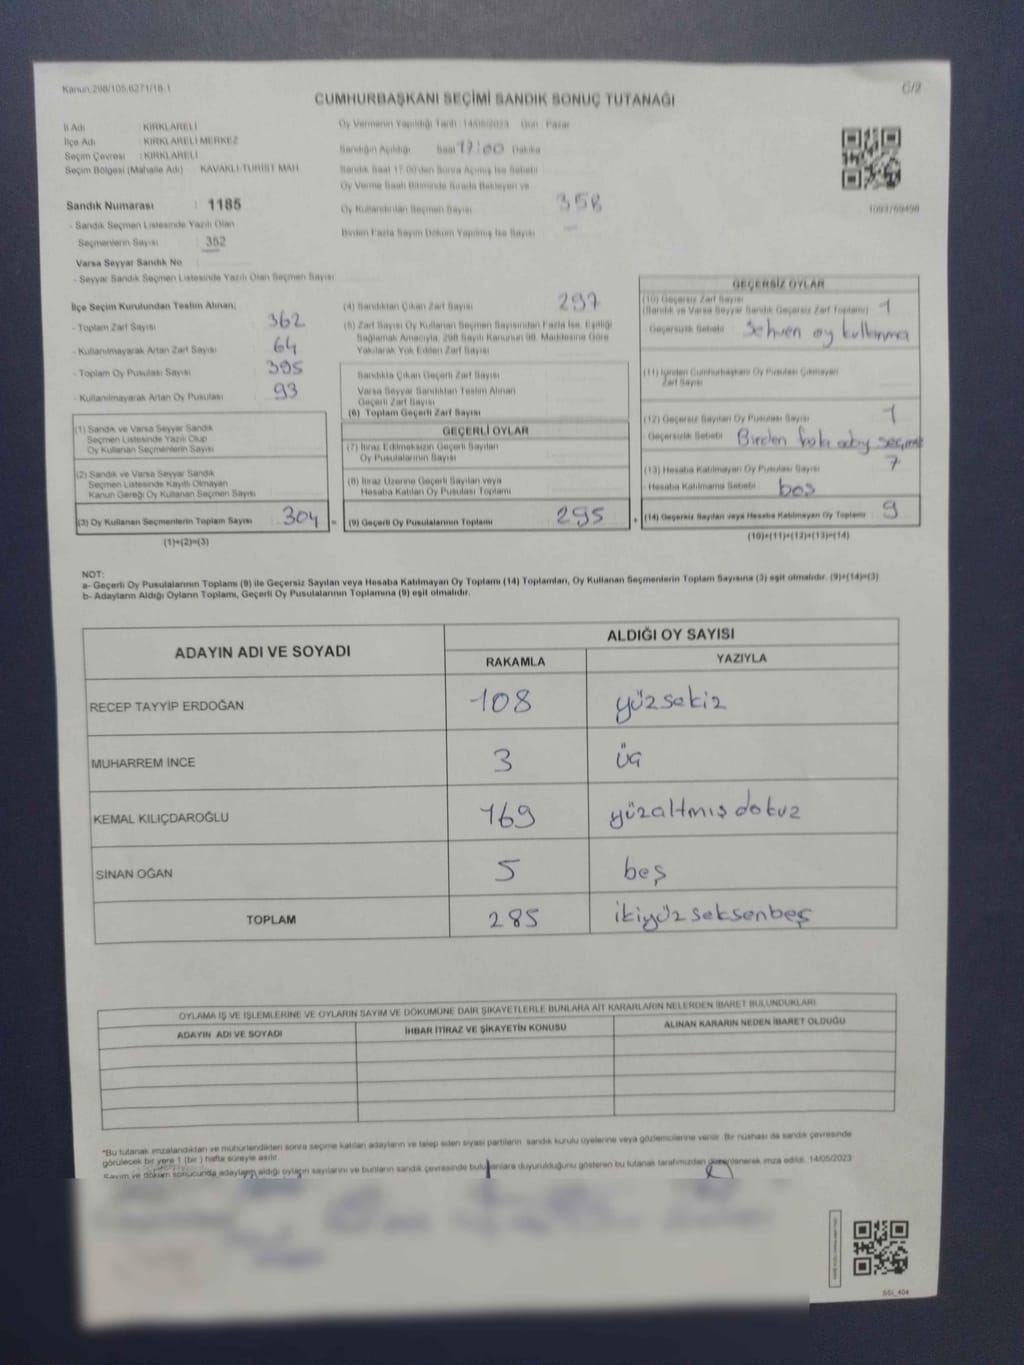 Kanun.298/105.6271/18.1
C/2
CUMHURBAŞKANI SEÇİMİ SANDIK SONUÇ TUTANAĞI
İl Adı : KIRKLARELİ
İlçe Adı : KIRKLARELİ MERKEZ
Seçim Çevresi : KIRKLARELİ
Seçim Bölgesi (Mahalle Adı) KAVAKLI-TURİST MAH.
Sandık Numarası : 1185
- Sandık Seçmen Listesinde Yazılı Olan
Seçmenlerin Sayısı : 352
Varsa Seyyar Sandık No
- Seyyar Sandık Seçmen Listesinde Yazılı Olan Seçmen Sayısı
Oy Vermenin Yapıldığı Tarih : 14/05/2023 Gün : Pazar
Sandığın Açıldığı Saat 17:00 Dakika
Sandık Saat 17.00'den Sonra Açılmış İse Sebebi
Oy Verme Saati Bitiminde Sırada Bekleyen ve
Oy Kullandırılan Seçmen Sayısı 358
Birden Fazla Sayım Döküm Yapılmış İse Sayısı
1093769498
İlçe Seçim Kurulundan Teslim Alınan;
- Toplam Zarf Sayısı 362
- Kullanılmayarak Artan Zarf Sayısı 64
- Toplam Oy Pusulası Sayısı 395
- Kullanılmayarak Artan Oy Pusulası 93
(1) Sandık ve Varsa Seyyar Sandık
Seçmen Listesinde Yazılı Olup
Oy Kullanan Seçmenlerin Sayısı
(2) Sandık ve Varsa Seyyar Sandık
Seçmen Listesinde Kayıtlı Olmayan
Kanun Gereği Oy Kullanan Seçmen Sayısı
(3) Oy Kullanan Seçmenlerin Toplam Sayısı 304 =
(1)+(2)=(3)
(4) Sandıktan Çıkan Zarf Sayısı 297
(5) Zarf Sayısı Oy Kullanan Seçmen Sayısından Fazla İse, Eşitliği
Sağlamak Amacıyla, 298 Sayılı Kanunun 98. Maddesine Göre
Yakılarak Yok Edilen Zarf Sayısı
Sandıkta Çıkan Geçerli Zarf Sayısı
Varsa Seyyar Sandıktan Teslim Alınan
Geçerli Zarf Sayısı
(6) Toplam Geçerli Zarf Sayısı
GEÇERLİ OYLAR
(7) İtiraz Edilmeksizin Geçerli Sayılan
Oy Pusulalarının Sayısı
(8) İtiraz Üzerine Geçerli Sayılan veya
Hesaba Katılan Oy Pusulası Toplamı
(9) Geçerli Oy Pusulalarının Toplamı 295 +
GEÇERSİZ OYLAR
(10) Geçersiz Zarf Sayısı
(Sandık ve Varsa Seyyar Sandık Geçersiz Zarf Toplamı) 1
- Geçersizlik Sebebi Sehven oy kullanma
(11) İçinden Cumhurbaşkanı Oy Pusulası Çıkmayan
Zarf Sayısı
(12) Geçersiz Sayılan Oy Pusulası Sayısı 1
- Geçersizlik Sebebi Birden fazla aday seçimi
(13) Hesaba Katılmayan Oy Pusulası Sayısı 7
- Hesaba Katılmama Sebebi boş
(14) Geçersiz Sayılan veya Hesaba Katılmayan Oy Toplamı 9
(10)+(11)+(12)+(13)=(14)
NOT:
a- Geçerli Oy Pusulalarının Toplamı (9) ile Geçersiz Sayılan veya Hesaba Katılmayan Oy Toplamı (14) Toplamları, Oy Kullanan Seçmenlerin Toplam Sayısına (3) eşit olmalıdır. (9)+(14)=(3)
b- Adayların Aldığı Oyların Toplamı, Geçerli Oy Pusulalarının Toplamına (9) eşit olmalıdır.
ADAYIN ADI VE SOYADI
ALDIĞI OY SAYISI
RAKAMLA YAZIYLA
RECEP TAYYİP ERDOĞAN 108 yüzsekiz
MUHARREM İNCE 3 üç
KEMAL KILIÇDAROĞLU 169 yüzaltmışdokuz
SİNAN OĞAN 5 beş
TOPLAM 285 ikiyüzseksenbeş
OYLAMA İŞ VE İŞLEMLERİNE VE OYLARIN SAYIM VE DÖKÜMÜNE DAİR ŞİKAYETLERLE BUNLARA AİT KARARLARIN NELERDEN İBARET BULUNDUKLARI
ADAYIN ADI VE SOYADI İHBAR İTİRAZ VE ŞİKAYETİN KONUSU ALINAN KARARIN NEDEN İBARET OLDUĞU
*Bu tutanak imzalandıktan ve mühürlendikten sonra seçime katılan adayların ve talep eden siyasi partilerin sandık kurulu üyelerine veya gözlemcilerine verilir. Bir nüshası da sandık çevresinde
görülecek bir yere 1 (bir ) hafta süreyle asılır.
Sayım ve döküm sonucunda adayların aldığı oyların sayılarını ve bunların sandık çevresinde bulunanlara duyurulduğunu gösteren bu tutanak tarafımızdan düzenlenerek imza edildi. 14/05/2023
SSİ_404